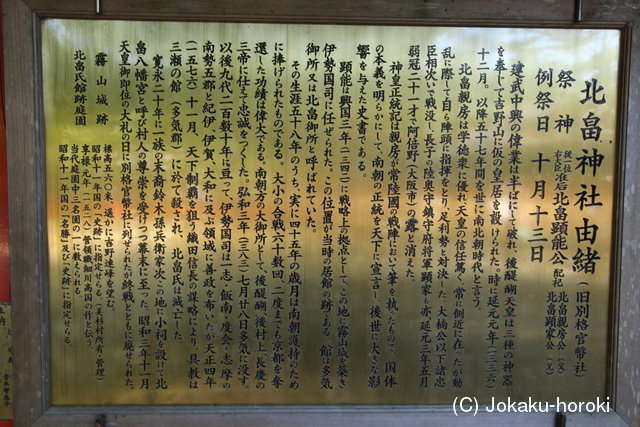 北畠神社由緒(旧別格官幣社)
祭神 従一位右大臣准后北畠顕能公 配祀 北畠親房公(父) 北畠顕家公(兄)
例祭日 十月十三日
建武中興の偉業は半ばにして破れ、後醍醐天皇は三種の神器
を奉じて吉野山に仮の皇居を設けられた。時に延元元年(一三三六)
十二月。以降五十七年間を世に南北朝時代と言う。
北畠親房は学徳衆に優れ天皇の信任篤く常に側近に在ったが動
乱に際して自ら陣頭に指揮をとり足利勢と対決した。大楠公以下諸忠
臣相次いで戦没し長子の陸奥守鎮守府将軍顕家も亦、延元三年五月
弱冠二十一才で阿倍野(大阪市)の露と消えた。
神皇正統記は親房が常陸国の戦陣において筆を執ったもので、国体
の本義を明らかにして、南朝の正統を天下に宣言し、後世に大きな影
響を与えた史書である。
顕能は興国三年(一三四二)戦略上の拠点として、この地に霧山城を築き
伊勢国司に任ぜられた。この位置が当時の居館の跡である。館は多気
御所又は北畠御所と呼ばれていた。
その生涯五十八年のうち、実に四十五年の歳月は南朝護持のため
に捧げられたものである。大小の合戦六十数回、二度までも京都を奪
還した功績は偉大である。南朝方の大御所として、後醍醐、後村上、長慶の
三帝に仕え忠誠をつくした。弘和三年(一三八三)七月廿八日多気に没す。
以後九代二百数十年に亘って、伊勢国司は一志・飯南・度会・志摩の
南勢五郡と紀伊、伊賀、大和に及ぶ領域に善政を布いたが天正四年
(一五七六)十一月、天下制覇を狙う織田信長の謀略により、具教は
三瀬の館(多気郡)に於て殺され、北畠氏は滅亡した。
寛永二十年に一族の末裔鈴木孫兵衛家次この地に小祠を設けて北
畠八幡宮と呼び村人の尊崇を受けつつ幕末に至った。昭和三年十一月
天皇御即位の大礼の日に別格官幣社に列せられたが終戦とともに廃せられた。
霧山城跡 標高五六〇米、遙かに吉野連峰を望む。
昭和十一年国の「史跡」に指定せらる。(美杉村所有・管理)
北畠氏館跡庭園 享禄元年(一五二八)管領職細川高国の作と伝う。
当代庭園中三名園の一に数えられる。
昭和十一年国の「名勝」及び「史跡」に指定せらる。
(C) Jokaku-horoki